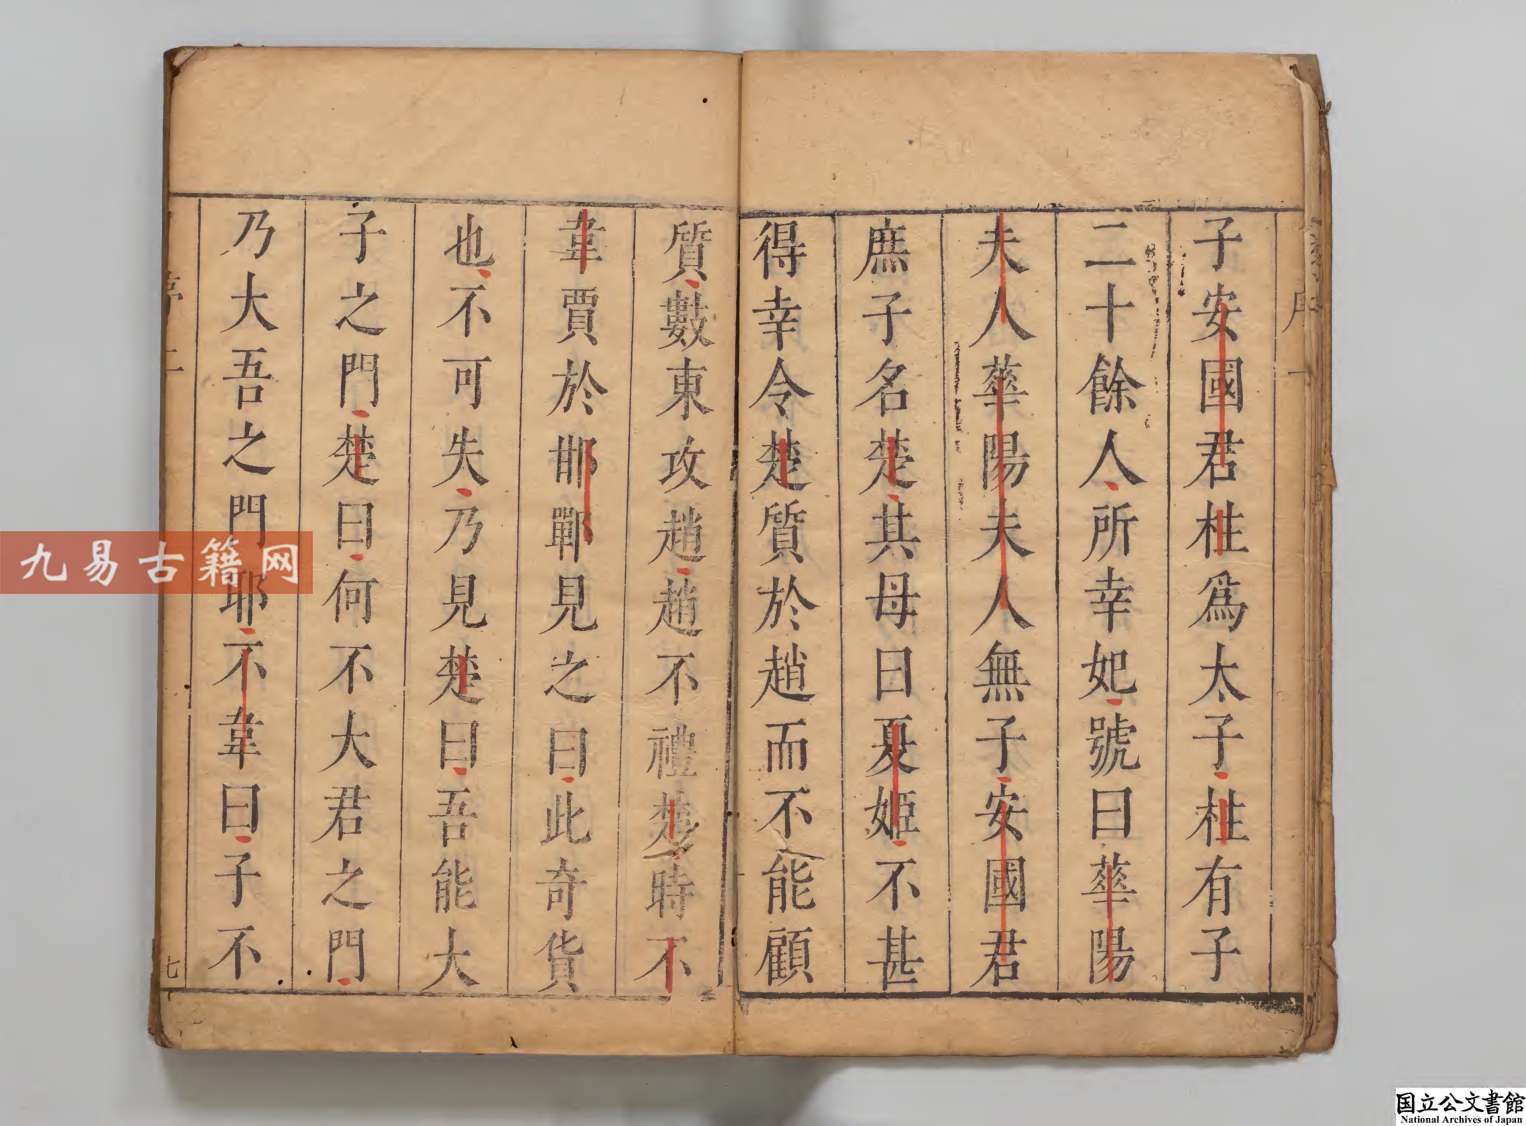 子安國君柱爲太子柱有子
二十餘人所幸妃號曰華陽
夫人華陽夫人無子安國君
庶子名楚其母曰夏姬不甚
得幸令楚質於趙而不能顧
質數東攻趙趙不禮楚時不
韋賈於邯鄲見之曰此奇貨
也不可失乃見楚曰吾能大
子之門楚曰何不大君之門
乃大吾之門耶不韋曰子不
七
九易古籍网
国立公文書館
National Archives of Japan